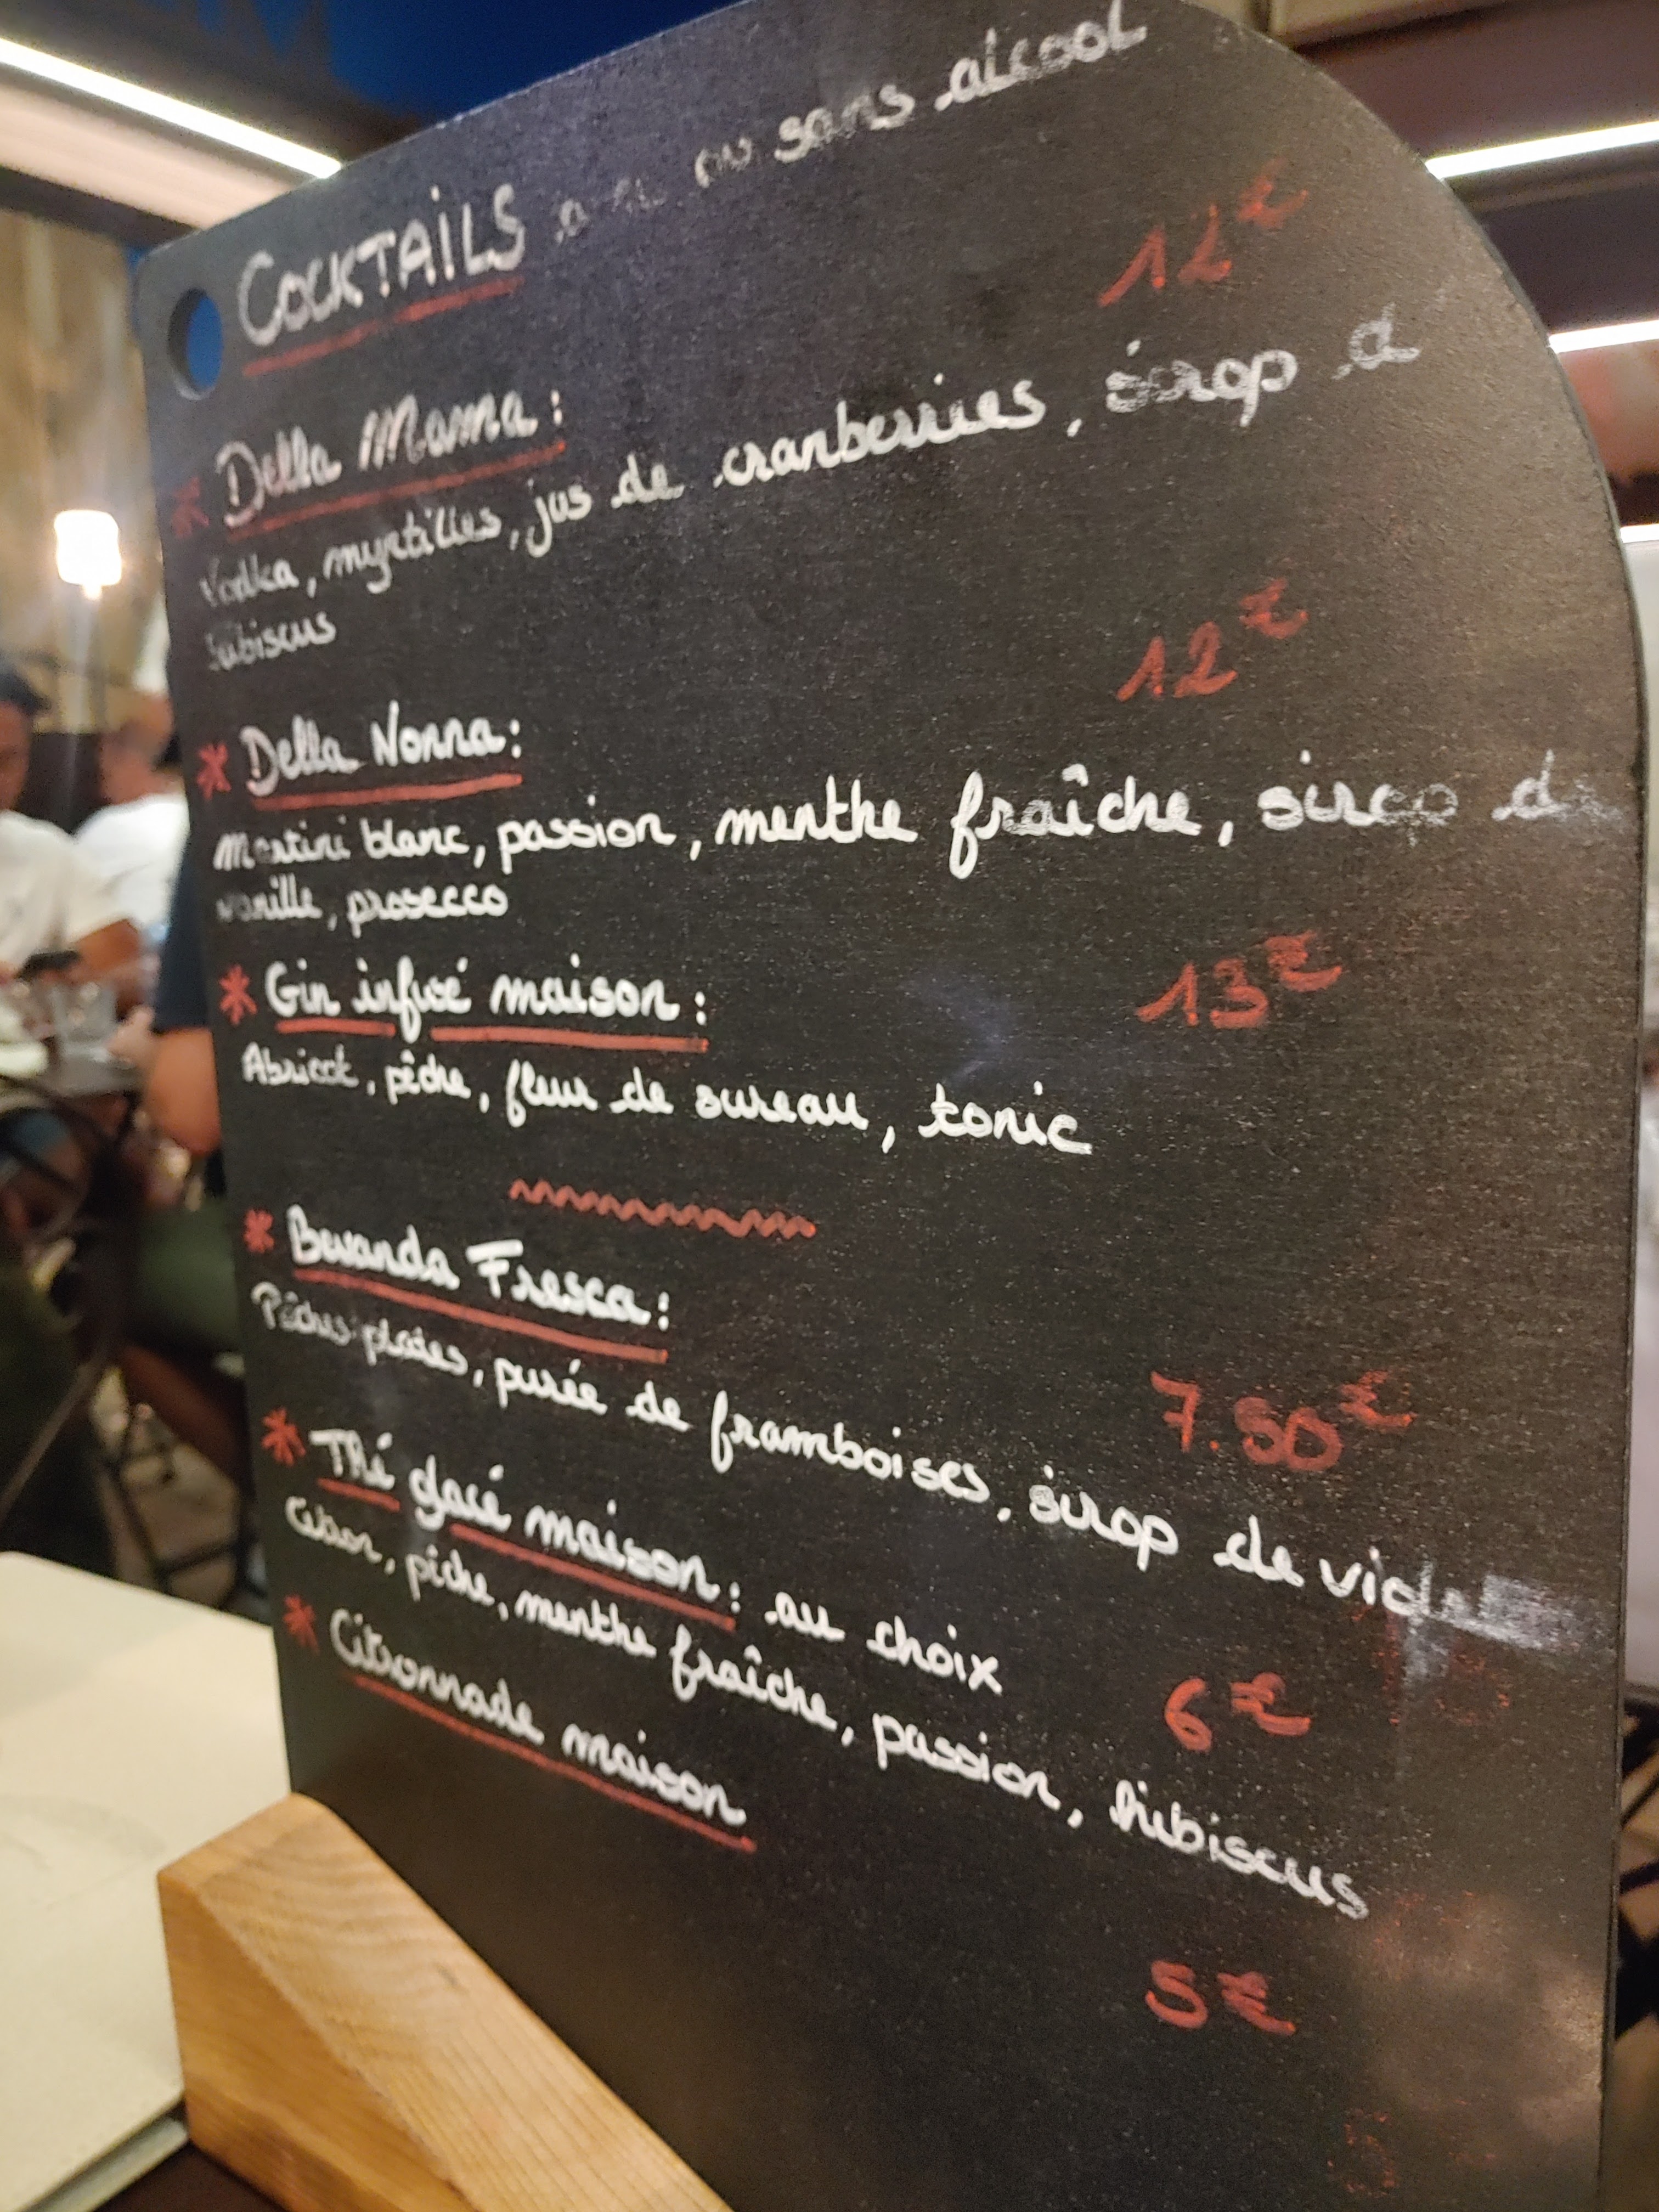 COCKTAILS ou sans alcool
12€
* Della Mamma :
Vodka, myrtilles, jus de cranberries, sirop d'
hibiscus
12€
* Della Nonna :
Martini blanc, passion, menthe fraîche, sirop de
vanille, prosecco
* Gin infusé maison : 13€
Abricot, pêche, fleur de sureau, tonic
* Bevanda Fresca :
7.50€
Pêches plates, purée de framboises, sirop de
* Thé glacé maison : au choix
6€
Citron, pêche, menthe fraîche, passion, hibiscus
* Citronnade maison
5€